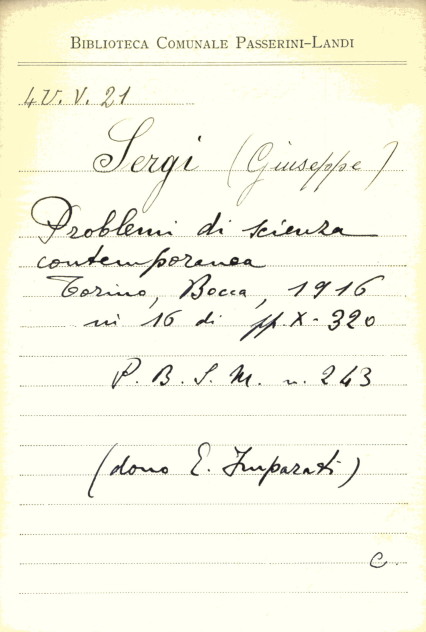 Biblioteca Comunale Passerini-Landi
4U. V. 21
Sergi (Giuseppe)
Problemi di scienza
contemporanea
Torino, Bocca, 1916
in 16 di pp. X-320
P. B. S. M. n. 243
(dono E. Imparati)
C.